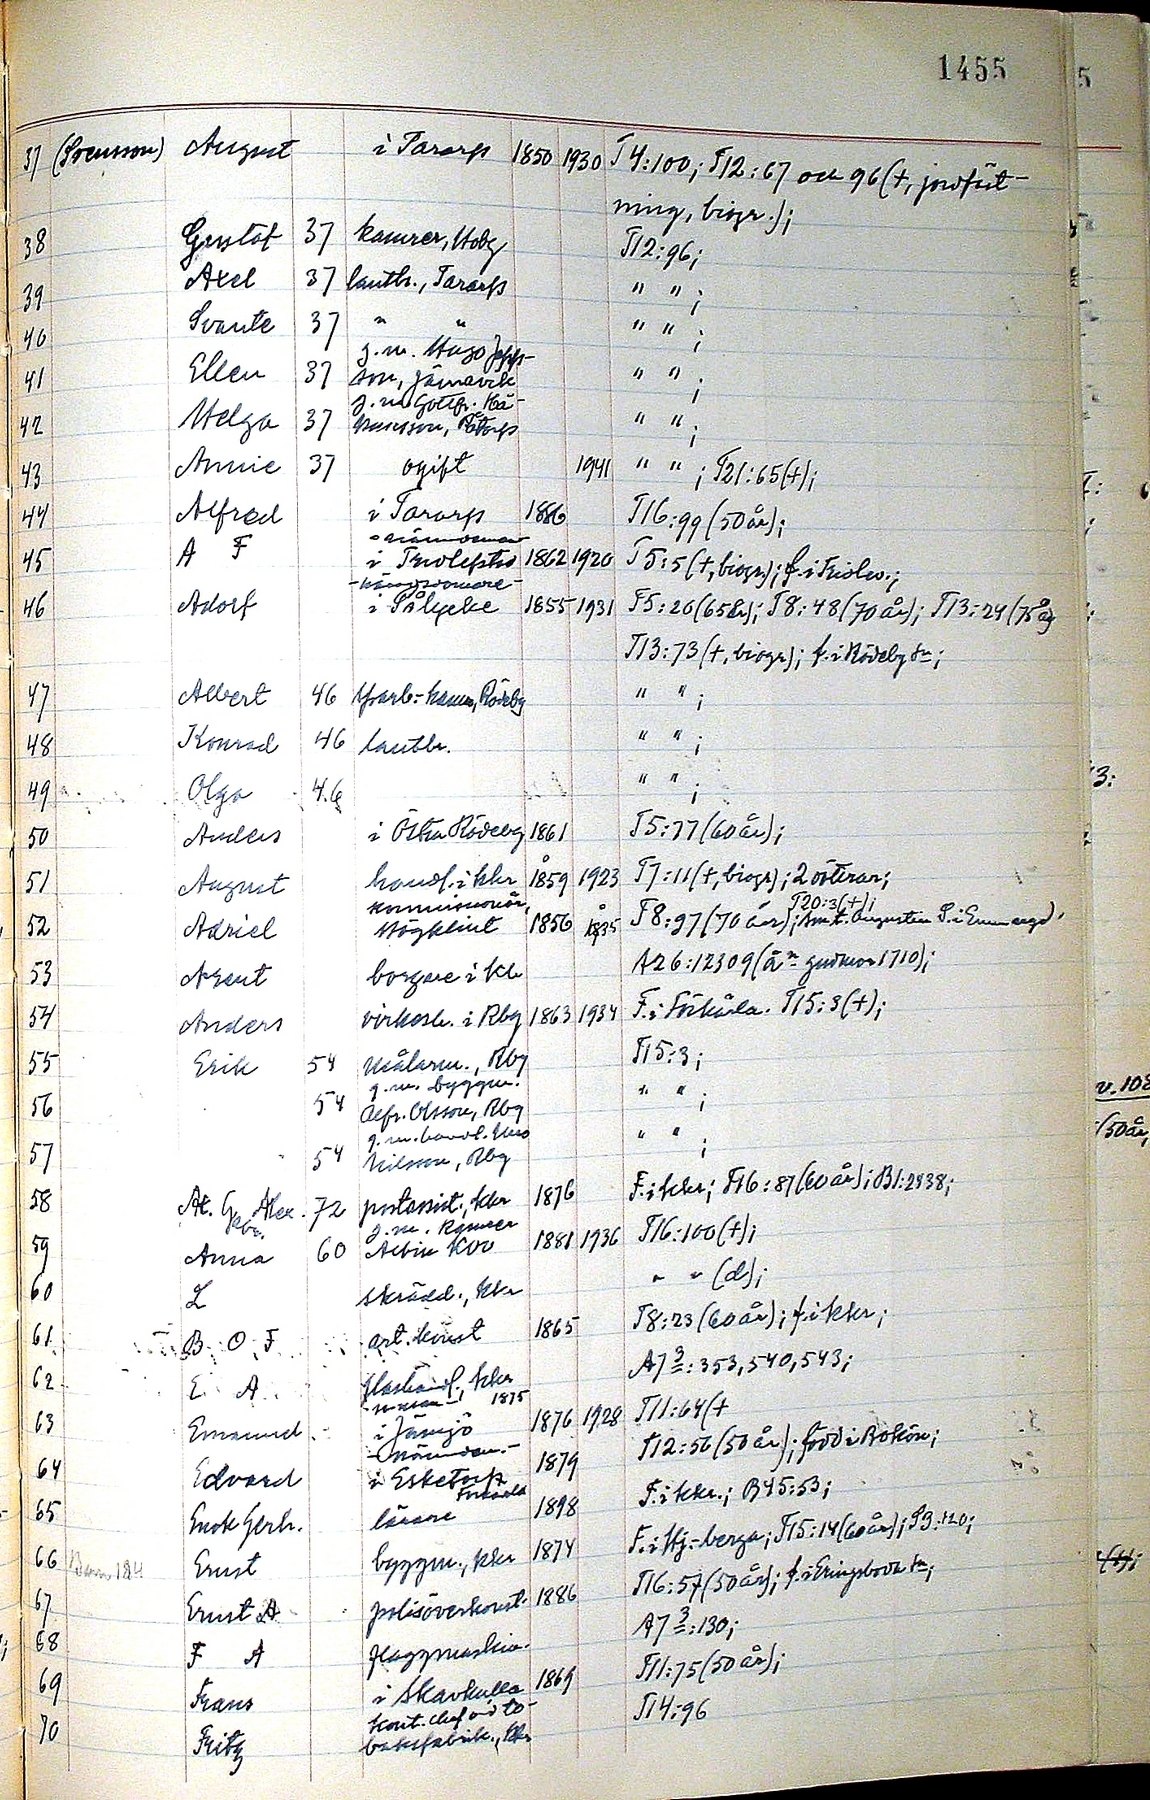 1455
37 (Svensson) August i Tararp 1850 1930 T4:100; T12:67 och 96 (+, jordfäst-
ning, biogr.);
38 Gustaf 37 kamrer, Hobg T12:96;
39 Axel 37 lantbr., Tararp " " ;
40 Svante 37 " " " " ;
41 Ellen 37 g.m. Hugo Jepps-
son, Järnavik " " ;
42 Helga 37 g.m. Gottfr. Hå-
kansson, " " ;
43 Annie 37 ogift 1941 " " ; T21:65(+);
44 Alfred i Tararp 1886 T16:99 (50 år);
45 A F i 1862 1920 T5:5 (+, biogr.); f. i Fridlev.;
46 Adolf i Pålycke 1855 1931 T5:20 (65 år); T8:48 (70 år); T13:24 (75 år)
T13:73 (+, biogr.); f. i Rödeby sn;
47 Albert 46 sparb.-kamr, Rödeby " " ;
48 Konrad 46 lantbr. " " ;
49 Olga 46 " " ;
50 Anders i Östra Rödeby 1861 T5:77 (60 år);
51 August handl. i kkr 1859 1923 T7:11 (+, biogr.); 2 döttrar;
52 Adriel kommissionär, 1856 1935 T8:97 (70 år); T20:3(+);
53 borgare i kkr A26:12309
54 Anders virkesh. i Rbg 1863 1934 F. i Förkärla. T15:3(+);
55 Erik 54 målarm., Rbg T15:3;
56 54 g.m. byggm.
Alfr. Olsson, Rbg " " ;
57 54 g.m. handl.
Nilsson, Rbg " " ;
58 Al. G. Alex. 72 postassist., kkr 1876 F. i kkr; T16:87 (60 år); B1:2938;
59 Anna 60 g.m. kamrer
Albin 1881 1936 T16:100(+);
60 L skrädd., kkr " " (d);
61 B O F art. konst 1865 T8:23 (60 år); f. i kkr;
62 E A kkr A7³:353, 540, 543;
63 Emanuel 1875
i Jämjö 1876 1928 T11:64(+
64 Edvard i Esketorp 1879 T12:56 (50 år); född i Bokön;
65 Enok Gerh. lärare 1898 F. i kkr.; B45:53;
66 Ernst byggm., kkr 1874 F. i Hj.-berga; T15:14 (60 år);
67 Ernst A polisöverkonst. 1886 T16:57 (50 år); f. i Eringsboda sn;
68 F A flaggmaskin. A7³:130;
69 Frans i Skavkulla 1869 T11:75 (50 år);
70 Fritz kont.chef vid to-
baksfabrik., kkr T14:96